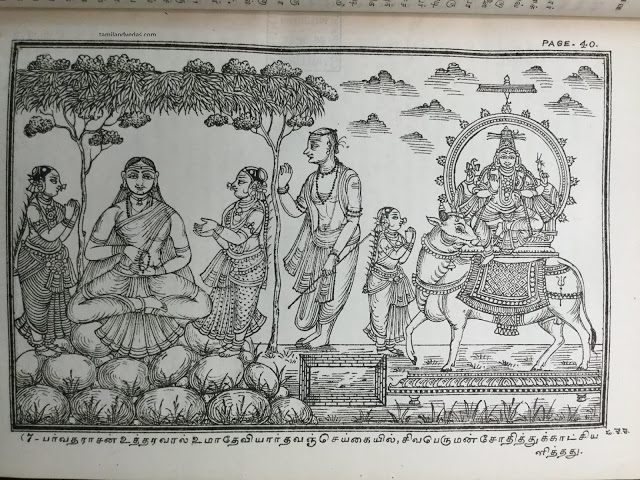 tamilandvedas.com
PAGE - 40.
(7 - பர்வதராசன் உத்தரவால் உமாதேவியார் தவஞ்செய்கையில், சிவபெருமான் சோதித்துக்காட்சிய
ளித்தது.